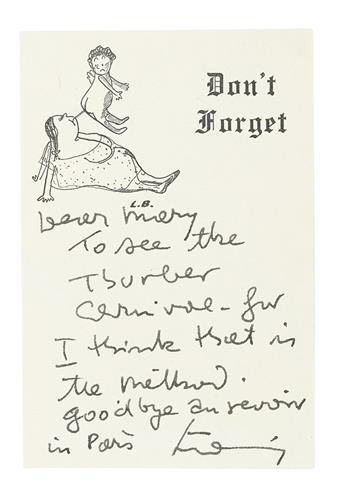 Don't
Forget
L.B.
Dear Mary
To see the
Thurber
Carnival - for
I think that is
the method.
goodbye au revoir
in Paris